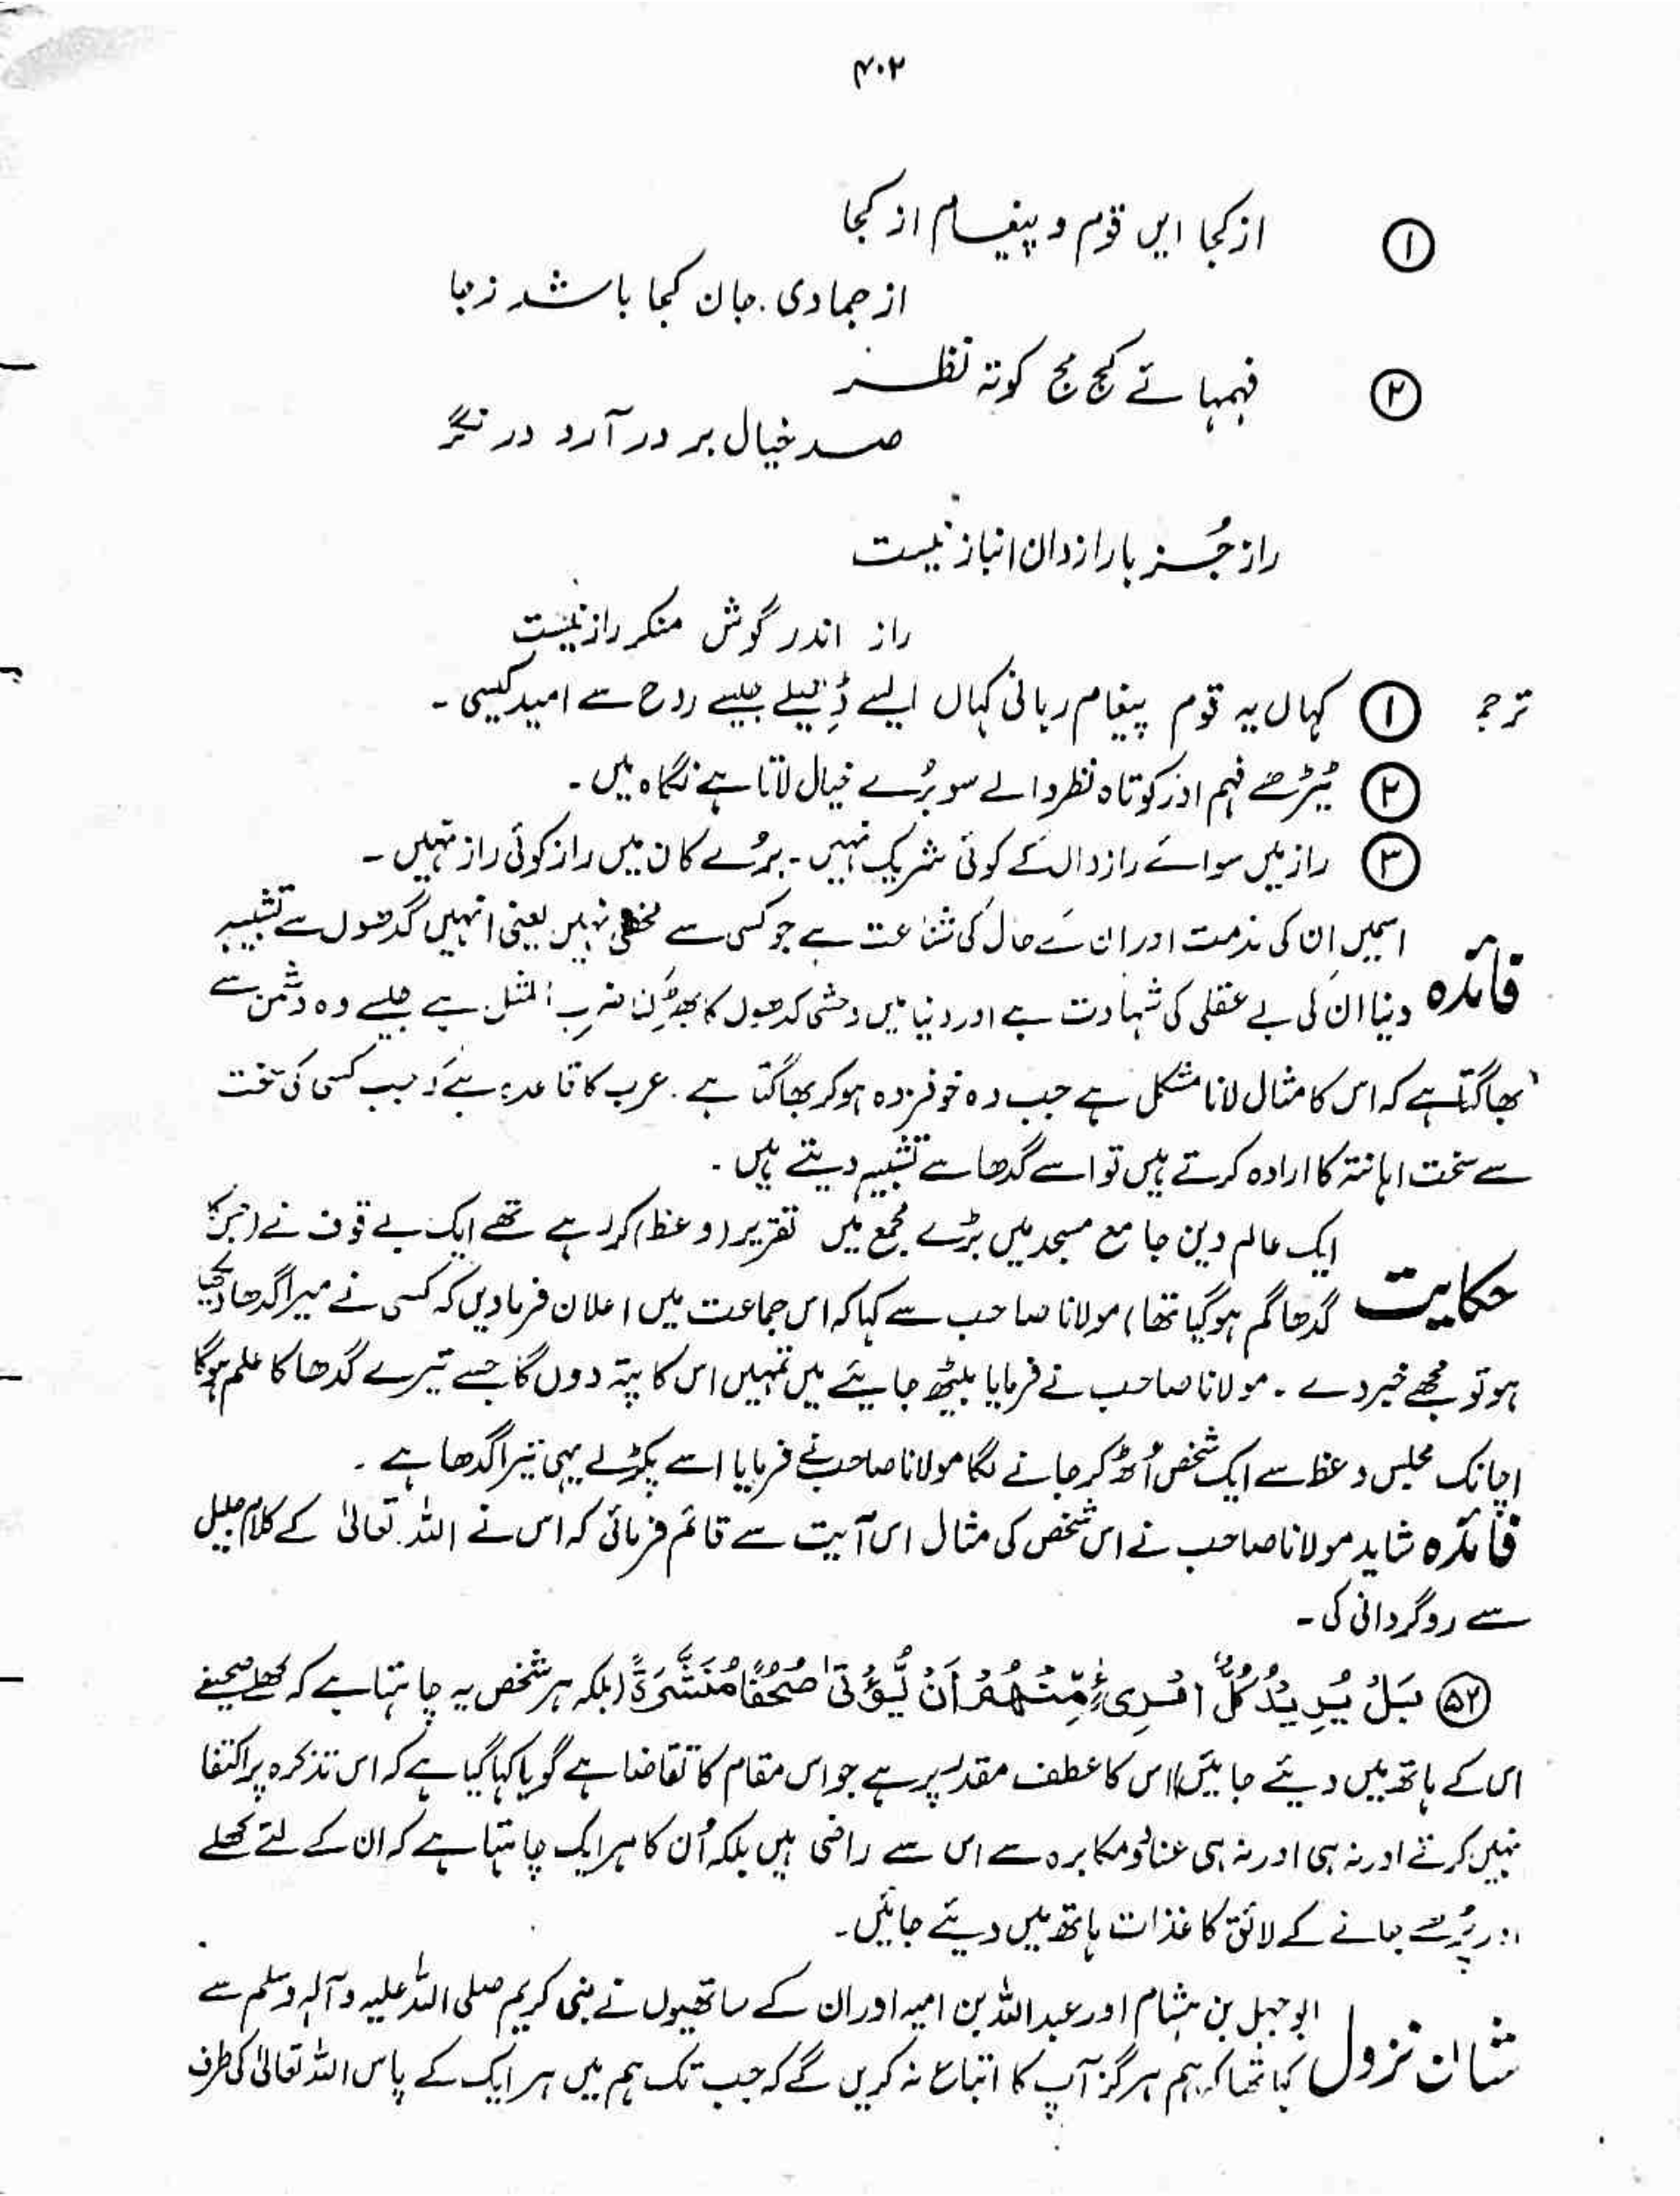 ۴۰۲
① از کجا ایں قوم و پیغام از کجا
از جمادی . جان کجا باشد زجا
② فہمہائے کج مج کوتہ نظر
صد خیال بر در آرد در نگر
راز جُز با رازدان انباز نیست
راز اندر گوش منکر راز نیست
ترجمہ ① کہاں یہ قوم پیغام ربانی کہاں ایسے ڈھیلے جیسے روح سے امید کیسی ۔
② ٹیڑھے فہم اور کوتاہ نظر والے سو بُرے خیال لاتا ہے نگاہ میں ۔
③ راز میں سوائے رازداں کے کوئی شریک نہیں ۔ بُرے کان میں راز کوئی راز نہیں ۔
اسمیں ان کی مذمت اور ان کے حال کی شناعت ہے جو کسی سے مخفی نہیں یعنی انہیں گدھوں سے تشبیہ
فائدہ دینا ان کی بے عقلی کی شہادت ہے اور دنیا میں وحشی گدھوں کا بھڑکن ضرب المثل ہے جیسے وہ دشمن سے
بھاگتا ہے کہ اس کا مثال لانا مشکل ہے جب وہ خوفزدہ ہوکر بھاگتا ہے . عرب کا قاعدہ ہے کہ جب کسی کی سخت
سے سخت اہانتہ کا ارادہ کرتے ہیں تو اسے گدھا سے تشبیہ دیتے ہیں ۔
ایک عالم دین جامع مسجد میں بڑے مجمع میں تقریر (وعظ) کر رہے تھے ایک بے قوف نے (جس کا
حکایت گدھا گم ہوگیا تھا) مولانا صاحب سے کہا کہ اس جماعت میں اعلان فرمادیں کہ کسی نے میرا گدھا دیکھا
ہو تو مجھے خبر دے ۔ مولانا صاحب نے فرمایا بیٹھ جایئے میں تمہیں اس کا پتہ دوں گا جسے تیرے گدھا کا علم ہوگا
اچانک مجلس وعظ سے ایک شخص اُٹھ کر جانے لگا مولانا صاحب نے فرمایا اسے پکڑلے یہی تیرا گدھا ہے ۔
فائدہ شاید مولانا صاحب نے اس شخص کی مثال اس آیت سے قائم فرمائی کہ اس نے اللہ تعالیٰ کے کلام جلیل
سے روگردانی کی ۔
۵۲ بَلْ یُرِیْدُ کُلُّ امْرِیءٍ مِّنْھُمْ اَنْ یُّؤْتٰی صُحُفًا مُّنَشَّرَةً (بلکہ ہر شخص یہ چاہتا ہے کہ کھلے صحیفے
اس کے ہاتھ میں دیئے جائیں) اس کا عطف مقدر پر ہے جو اس مقام کا تقاضا ہے گویا کہا گیا ہے کہ اس تذکرہ پر اکتفا
نہیں کرتے اور نہ ہی اور نہ ہی عناد و مکابرہ سے اس سے راضی ہیں بلکہ اُن کا ہر ایک چاہتا ہے کہ ان کے لئے کھلے
اور پڑھے جانے کے لائق کاغذات ہاتھ میں دیئے جائیں ۔
ابوجہل بن ہشام اور عبداللہ بن امیہ اور ان کے ساتھیوں نے نبی کریم صلی اللہ علیہ وآلہٖ وسلم سے
شان نزول کہا تھا کہ ہم ہرگز آپ کا اتباع نہ کریں گے کہ جب تک ہم میں ہر ایک کے پاس اللہ تعالیٰ کی طرف